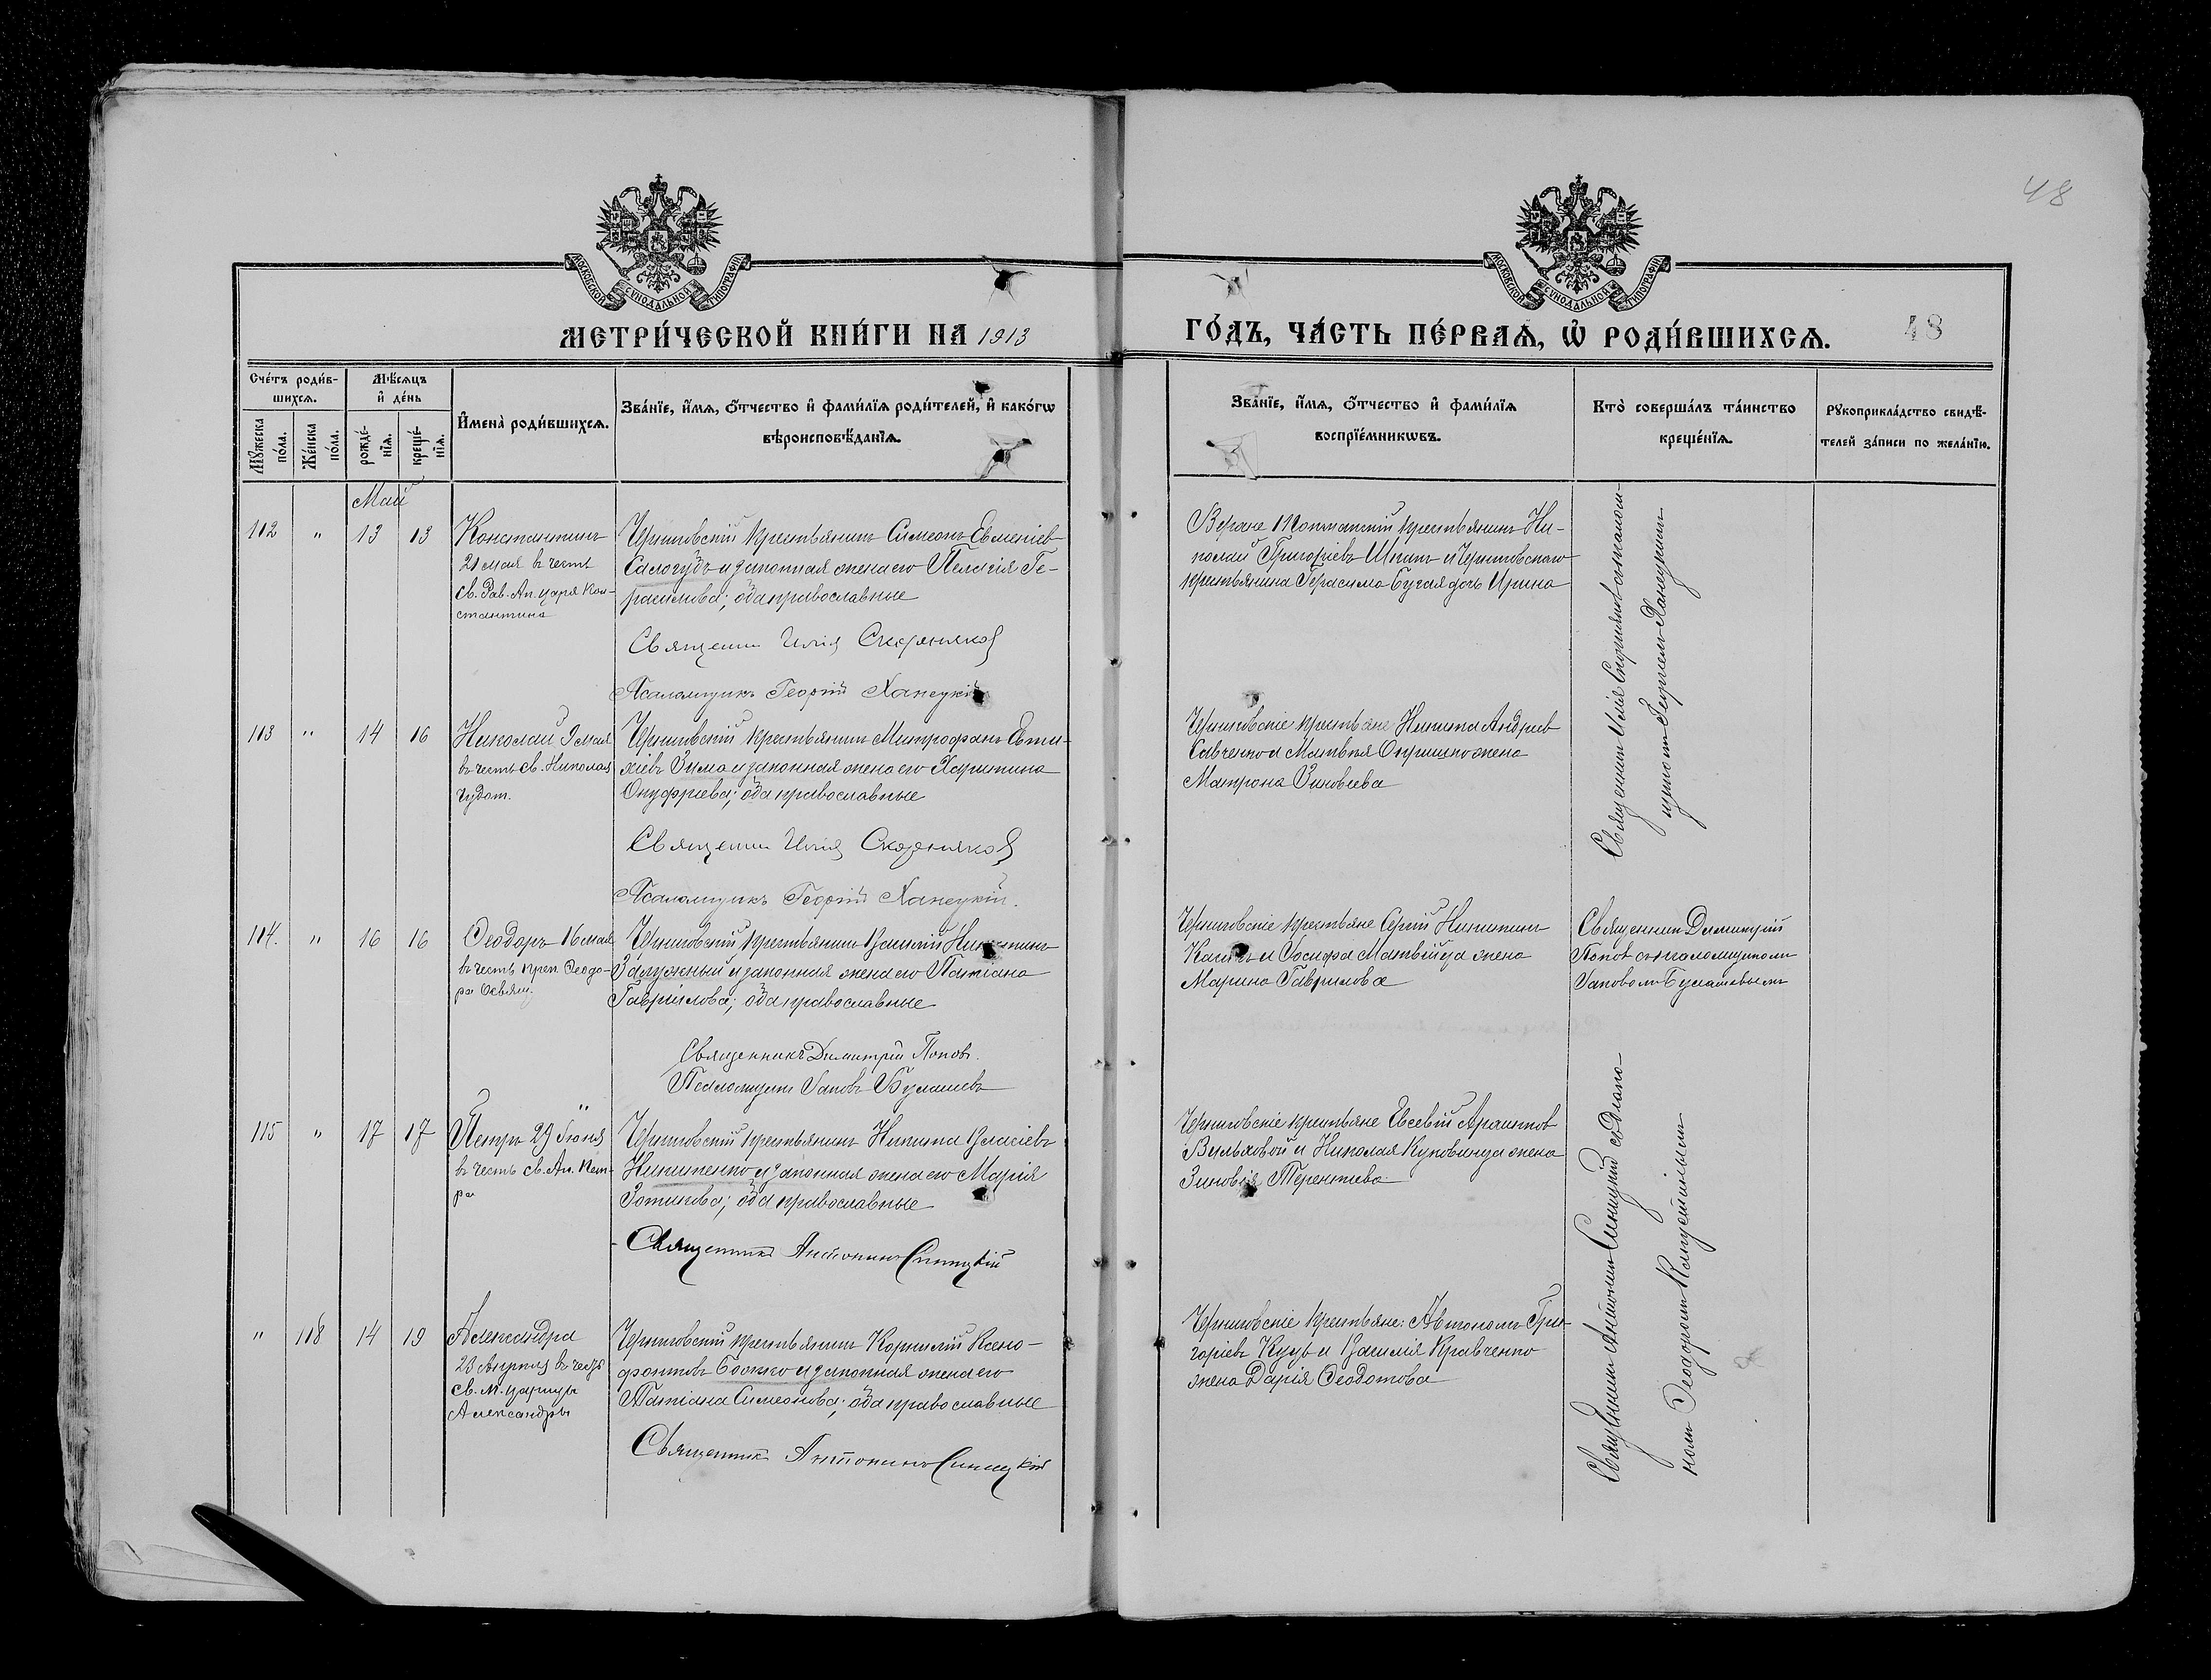 48
МОСКОВСКОЙ СѴНОДАЛЬНОЙ ТИПОГРАФІИ
МОСКОВСКОЙ СѴНОДАЛЬНОЙ ТИПОГРАФІИ
МЕТРИ́ЧЕСКОЙ КНИ́ГИ НА 1913
ГО́ДЪ, ЧА́СТЬ ПЕ́РВАѦ, Ѡ҆ РОДИ́ВШИХСѦ.
48
Сче́тъ роди́в-
шихсѧ.
Мꙋ́жеска
по́ла.
Же́нска
по́ла.
Мѣ́сѧцъ
и҆ де́нь
рожде́-
нїѧ.
креще́-
нїѧ.
И҆мена̀ роди́вшихсѧ.
Зва́нїе, и҆́мѧ, ѻ҆́тчество и҆ фами́лїѧ роди́телей, и҆ како́гѡ
вѣроисповѣ́данїѧ.
Зва́нїе, и҆́мѧ, ѻ҆́тчество и҆ фами́лїѧ
воспрїе́мникѡвъ.
Кто̀ соверша́лъ та́инство
креще́нїѧ.
Рꙋкоприкла́дство свидѣ́-
телей за́писи по жела́нїю.
Май
112 " 13 13
Константинъ
21 мая въ честь
св. Рав. Ап. царя Кон-
стантина
Черниговскій крестьянинъ Симеонъ Евменіев
Салогубъ и законная жена его Пелагія Ге-
расимова; оба православные
Священник Илія Скорняков
Псаломщикъ Георгій Ханецкій
крестьянинъ Ни-
колай Григоріевъ Шпакъ и Черниговскаго
крестьянина Герасима Бугая дочь Ирина
Священник Илія Скорняков с псалом-
щиком Георгием Ханецким
113 " 14 16
Николай 9 мая
въ честь св. Николая
Чудот.
Черниговскій крестьянинъ Митрофанъ Евти-
хіевъ Зима и законная жена его Харитина
Онуфріева; оба православные
Священник Илія Скорняков
Псаломщикъ Георгій Ханецкій.
Черниговскіе крестьяне Никита Андреев
Савченко и Матвѣя Онришко жена
Матрона Зиновеева
114. " 16 16
Ѳеодоръ 16 мая
въ честь преп. Ѳеодо-
ра Освящ.
Черниговскій крестьянинъ Василій Никитинъ
Залужный и законная жена его Татіана
Гавриілова; оба православные
Священникъ Димитрій Поповъ.
Псаломщикъ Іаковъ Булашевъ
Черниговскіе крестьяне Сергій Никитинъ
и Іосифа Матвійца жена
Марина Гаврилова
Священник Димитрій
Попов съ псаломщиком
Іаковомъ Булашевымъ
115 " 17 17
Петръ 29 Іюня
въ честь св. Ап. Пет-
ра
Черниговскій крестьянинъ Никита Власіевъ
Никитенко и законная жена его Марія
Зотикова; оба православные
Священникъ Антонинъ Синицкій
Черниговскіе крестьяне Евсевій
Вильховой и Николая Куковинца жена
Зиновія Терентіева
Священник Антонин Синицкій с Діако-
ном Ѳеодором
" 118 14 19
Александра
23 Апрѣля въ честь
св. м. царицы
Александры
Черниговскій крестьянинъ Корнилій Ксено-
фонтовъ Божко и законная жена его
Татіана Симеонова; оба православные
Священникъ Антонинъ Синицкій
Черниговскіе крестьяне: Автономъ Гри-
горіевъ Куцъ и Василія Кравченко
жена Дарія Ѳеодотова